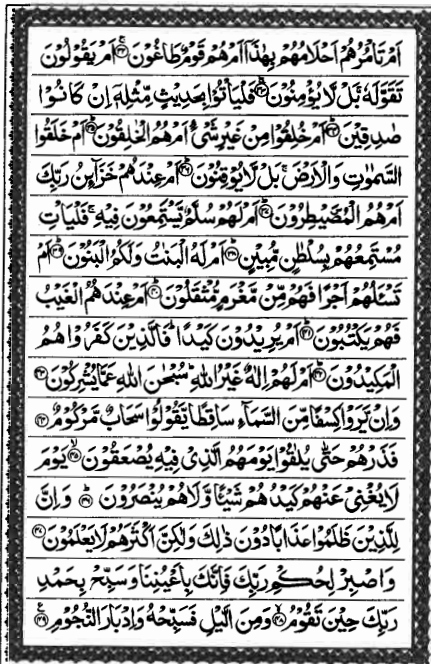 اَمْ تَاْمُرُهُمْ اَحْلَامُهُمْ بِهٰذَاۤ اَمْ هُمْ قَوْمٌ طَاغُوْنَ ۚ﴿۳۲﴾ اَمْ يَقُوْلُوْنَ
تَقَوَّلَهٗ ۚ بَلْ لَّا يُؤْمِنُوْنَ ۚ﴿۳۳﴾ فَلْيَاْتُوْا بِحَدِيْثٍ مِّثْلِهٖۤ اِنْ كَانُوْا
صٰدِقِيْنَ ؕ﴿۳۴﴾ اَمْ خُلِقُوْا مِنْ غَيْرِ شَيْءٍ اَمْ هُمُ الْخٰلِقُوْنَ ؕ﴿۳۵﴾ اَمْ خَلَقُوا
السَّمٰوٰتِ وَالْاَرْضَ ۚ بَلْ لَّا يُوْقِنُوْنَ ؕ﴿۳۶﴾ اَمْ عِنْدَهُمْ خَزَآئِنُ رَبِّكَ
اَمْ هُمُ الْمُصَۜيْطِرُوْنَ ؕ﴿۳۷﴾ اَمْ لَهُمْ سُلَّمٌ يَّسْتَمِعُوْنَ فِيْهِ ۚ فَلْيَاْتِ
مُسْتَمِعُهُمْ بِسُلْطٰنٍ مُّبِيْنٍ ؕ﴿۳۸﴾ اَمْ لَهُ الْبَنٰتُ وَلَكُمُ الْبَنُوْنَ ؕ﴿۳۹﴾ اَمْ
تَسْـَٔلُهُمْ اَجْرًا فَهُمْ مِّنْ مَّغْرَمٍ مُّثْقَلُوْنَ ؕ﴿۴۰﴾ اَمْ عِنْدَهُمُ الْغَيْبُ
فَهُمْ يَكْتُبُوْنَ ؕ﴿۴۱﴾ اَمْ يُرِيْدُوْنَ كَيْدًا ؕ فَالَّذِيْنَ كَفَرُوْا هُمُ
الْمَكِيْدُوْنَ ؕ﴿۴۲﴾ اَمْ لَهُمْ اِلٰهٌ غَيْرُ اللّٰهِ ؕ سُبْحٰنَ اللّٰهِ عَمَّا يُشْرِكُوْنَ ﴿۴۳﴾
وَاِنْ يَّرَوْا كِسْفًا مِّنَ السَّمَآءِ سَاقِطًا يَّقُوْلُوْا سَحَابٌ مَّرْكُوْمٌ ﴿۴۴﴾
فَذَرْهُمْ حَتّٰى يُلٰقُوْا يَوْمَهُمُ الَّذِيْ فِيْهِ يُصْعَقُوْنَ ۙ﴿۴۵﴾ يَوْمَ
لَا يُغْنِيْ عَنْهُمْ كَيْدُهُمْ شَيْـًٔا وَّلَا هُمْ يُنْصَرُوْنَ ؕ﴿۴۶﴾ وَاِنَّ
لِلَّذِيْنَ ظَلَمُوْا عَذَابًا دُوْنَ ذٰلِكَ وَلٰكِنَّ اَكْثَرَهُمْ لَا يَعْلَمُوْنَ ﴿۴۷﴾
وَاصْبِرْ لِحُكْمِ رَبِّكَ فَاِنَّكَ بِاَعْيُنِنَا وَسَبِّحْ بِحَمْدِ
رَبِّكَ حِيْنَ تَقُوْمُ ۙ﴿۴۸﴾ وَمِنَ الَّيْلِ فَسَبِّحْهُ وَاِدْبَارَ النُّجُوْمِ ﴿۴۹﴾ ع